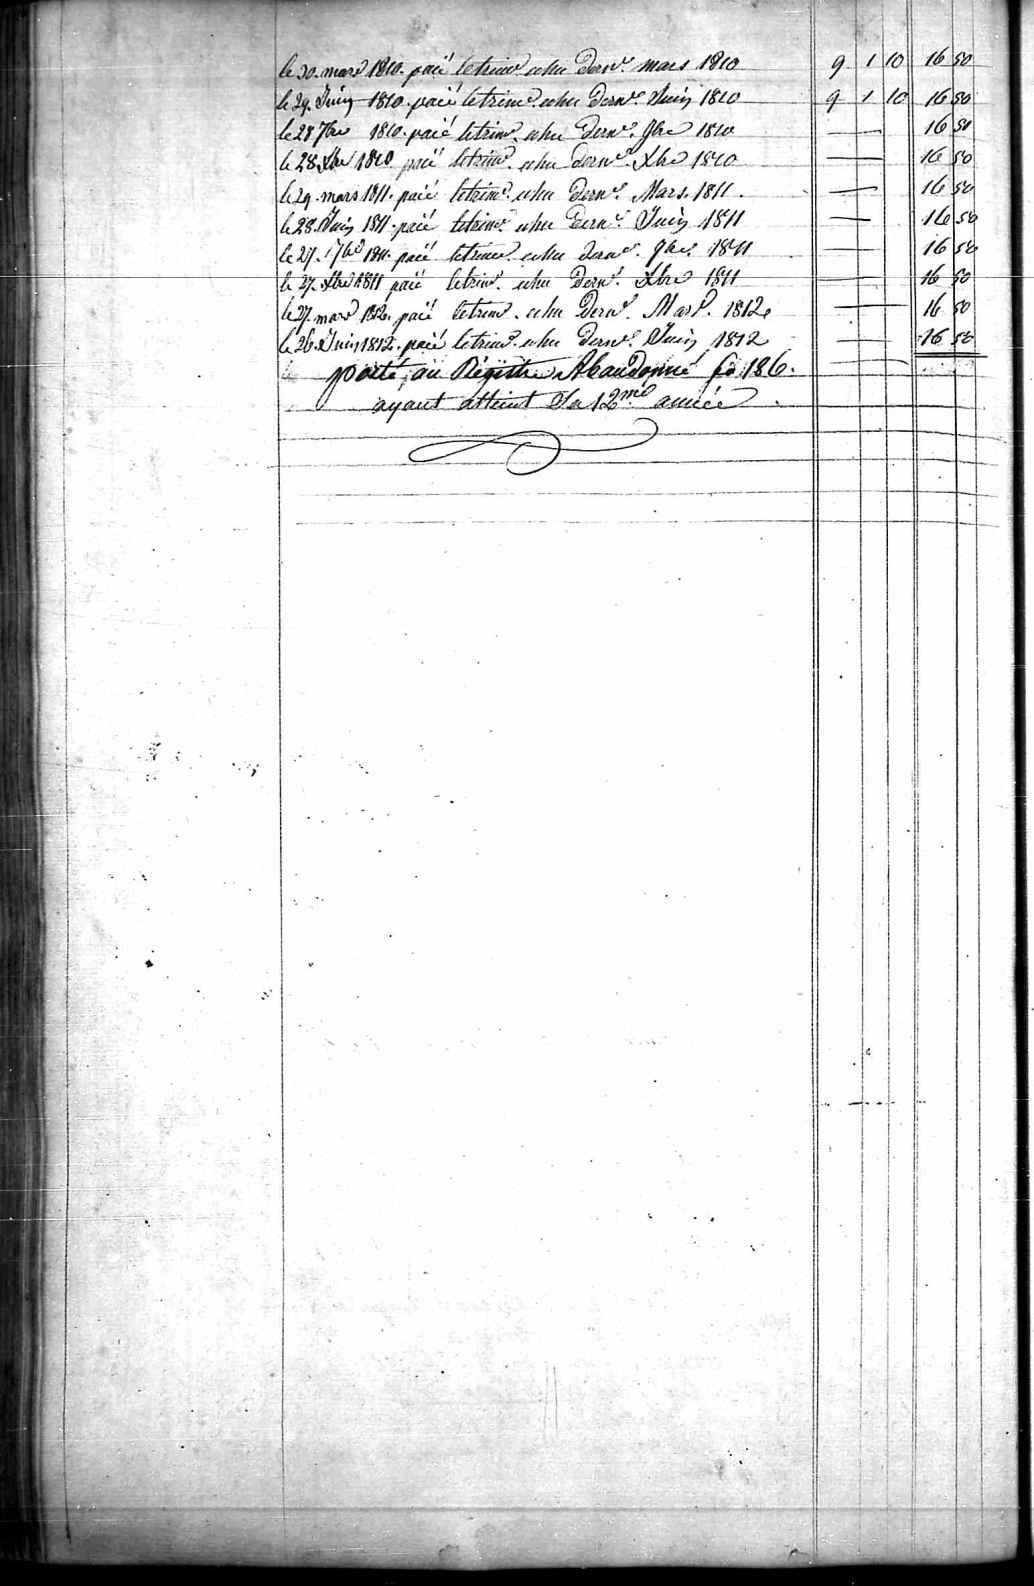 le 30. mars 1810. paié le trimr. echu dernr. mars 1810 9 1 10 16 50
le 29. Juin 1810. paié le trimr. echu dernr. Juin 1810 9 1 10 16 50
le 28 7bre 1810. paié le trimr. echu dernr. 9bre 1810 — 16 50
le 28. Xbre 1810 paié le trimr. echu dernr. Xbre 1810 — 16 50
le 29. mars 1811. paié le trimr. echu dernr. Mars. 1811. — 16 50
le 28. Juin 1811. paié le trimr. echu dernr. Juin 1811 — 16 50
le 27. 7bre 1811. paié le trimr. echu dernr. 9bre. 1811 — 16 50
le 27. Xbre 1811 paié le trimr. echu dernr. Xbre 1811 — 16 50
le 27. mars 1812. paié le trimr. echu dernr. Mars. 1812. — 16 50
le 26. Juin 1812. paié le trimr. echu dernr. Juin 1812 — 16 50
porté au Régistre Abandonné fo. 186.
ayant atteint Sa 12me. année.